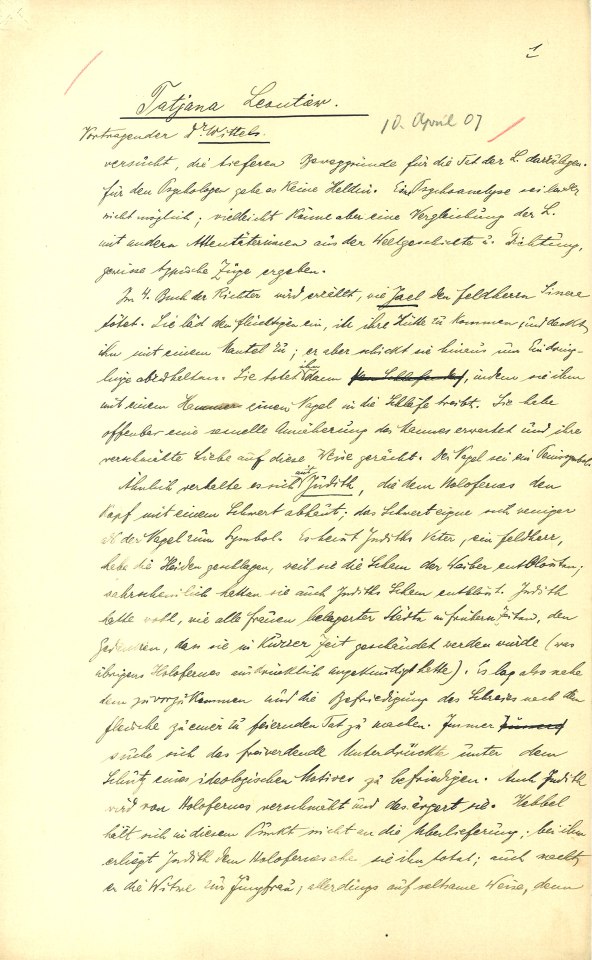 1
Tatjana Leontiew.
10. April 07
Vortragender Dr Wittels.
versucht, die tieferen Beweggründe für die Tat der L. darzulegen.
für den Psychologen gebe es keine Heldin. Eine Psychoanalyse sei leider
nicht möglich; vielleicht könne aber eine Vergleichung der L.
mit andern Attentäterinnen aus der Weltgeschichte u. Dichtung,
gewisse typische Züge ergeben.
Im 4. Buch der Richter wird erzählt, wie Jael den feldherrn Sisera
tötet. Sie läd den flüchtigen ein, in ihre Hütte zu kommen und deckt
ihn mit einem Mantel zu; er aber schickt sie hinaus um Eindring-
linge abzuhalten. Sie totet ihn dann, indem sie ihm
mit einem Hammer einen Nagel in die Schläfe treibt. Sie habe
offenbar eine sexuelle Annäherung des Mannes erwartet und ihre
verschmähte Liebe auf diese Weise gerächt. Der Nagel sei ein Penissymbol.
Ähnlich verhalte es sich mit Judith, die dem Holofernes den
Kopf mit einem Schwert abhaut; das Schwert eigne sich weniger
als der Nagel zum Symbol. Es heisst Judiths Vater, ein feldherr,
habe die Heiden geschlagen, weil sie die Scham der Weiber entblössten;
wahrscheinlich hatten sie auch Judiths Scham entblösst. Judith
hatte wohl, wie alle frauen belagerter Städte in frühern Zeiten, den
Gedanken, dass sie in kurzer Zeit geschändet werden würde (was
übrigens Holofernes ausdrücklich angekündigt hatte). Es lag also nahe
dem zuvorzukommen und die Befriedigung des Schreies nach dem
fleische zu einer zu feiernden Tat zu machen. Immer
suche sich das freiwerdende Unterdrückte unter dem
Schutz eines ideologischen Motives zu befriedigen. Auch Judith
wird von Holofernes verschmäht und das ärgert sie. Hebbel
hält sich in diesem Punkt nicht an die Überlieferung; bei ihm
erliegt Judith dem Holofernes ehe sie ihn totet; auch macht
er die Witwe zur Jungfrau; allerdings auf seltsame Weise, denn